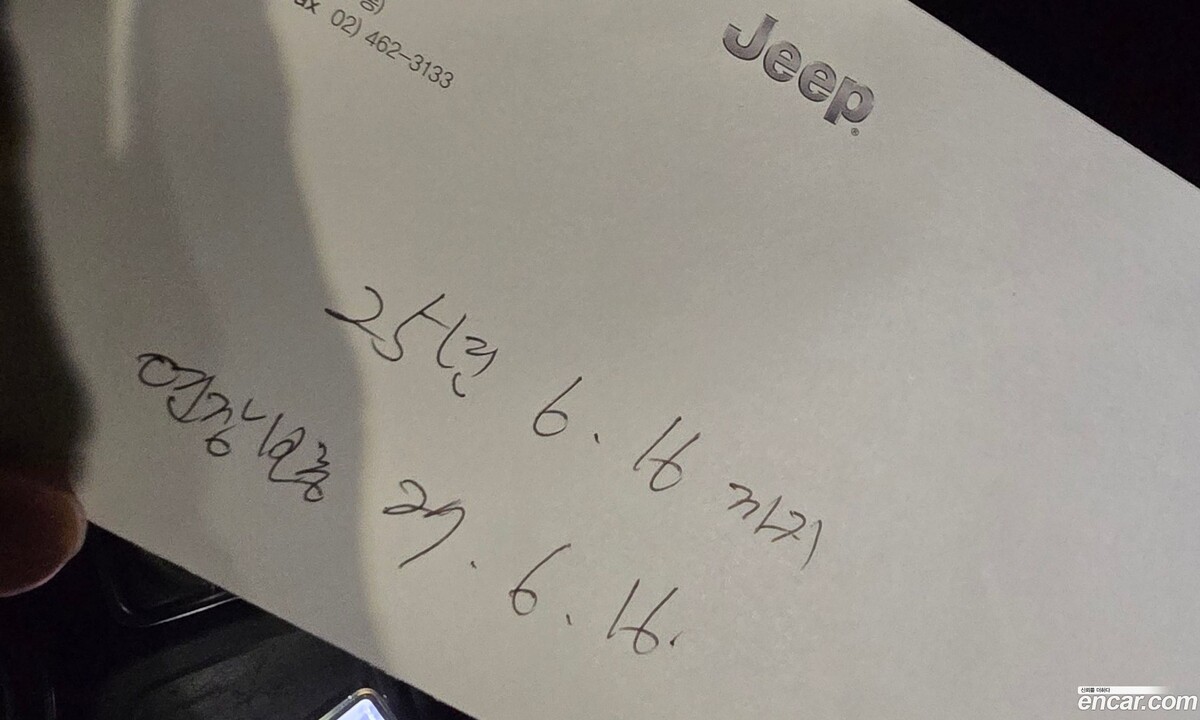 02) 462-3133
Jeep
25년 6. 16 까지
24. 6. 16.
신뢰를 더하다
encar.com